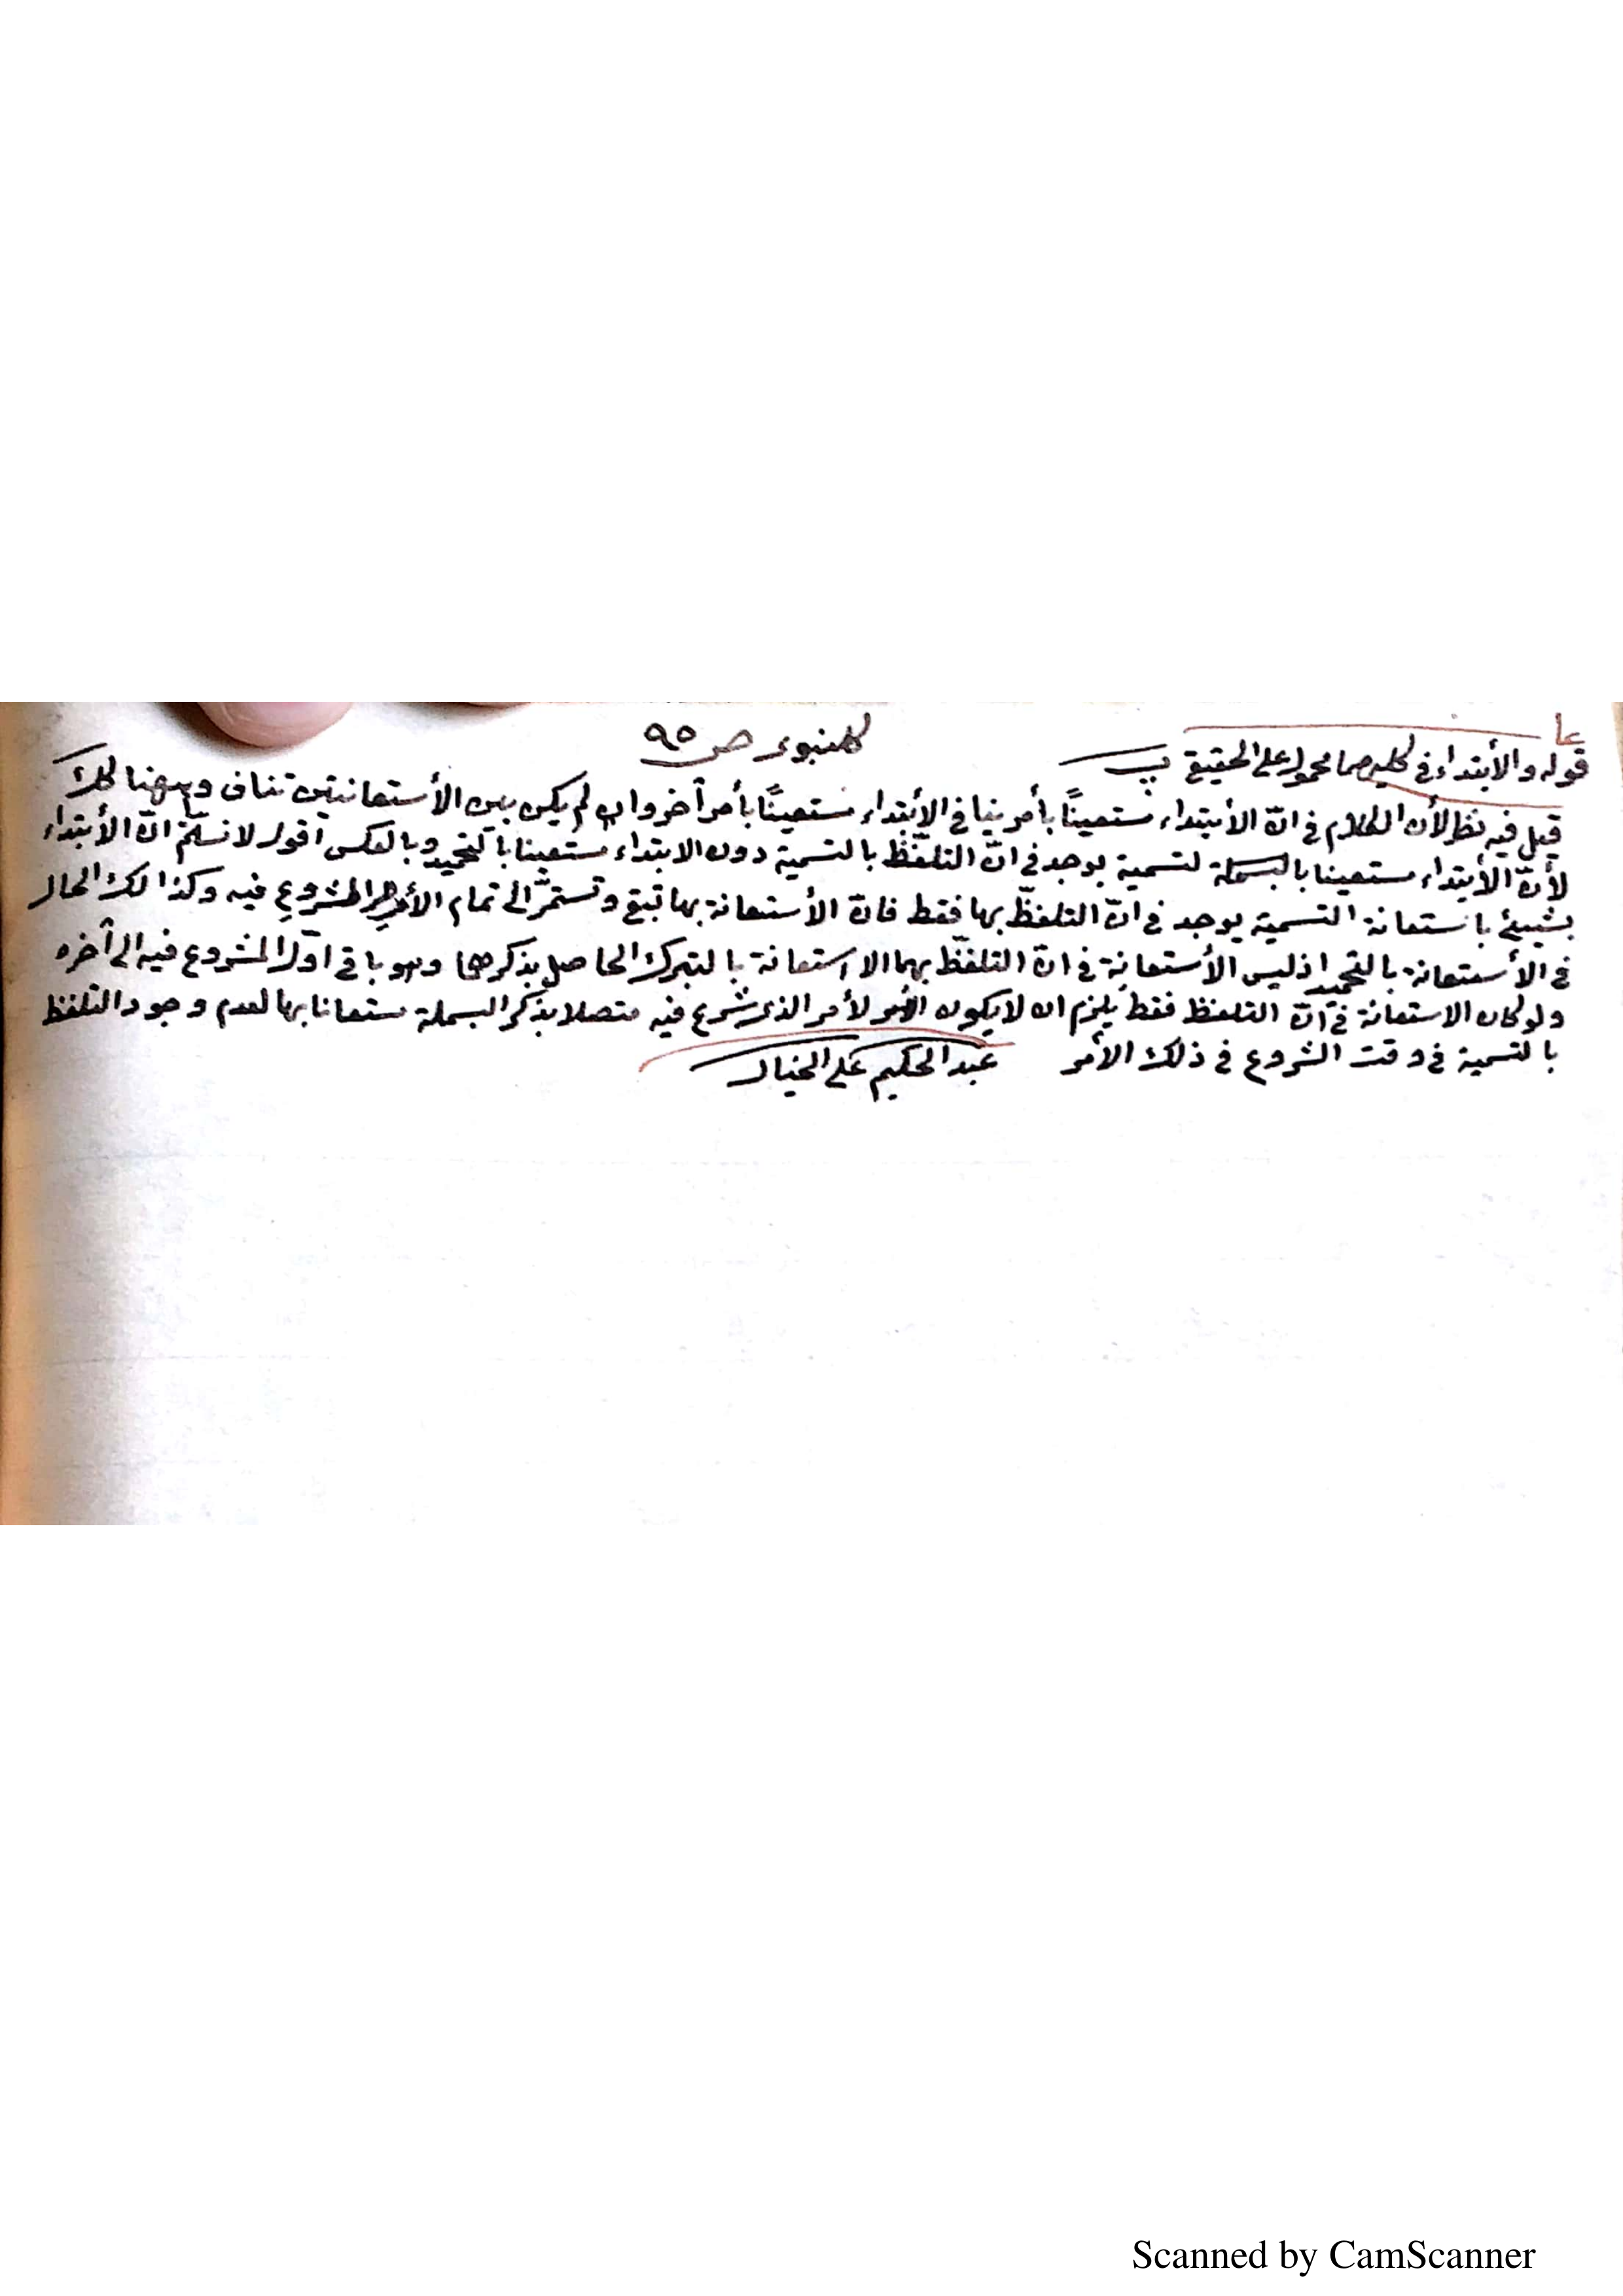 كلنبوى ص ٩٥
قوله والأبتداء فى كليهما محمول على الحقيقى
قيل فيه نظر لأن الكلام فى انّ الأبتداء مستعينًا بأمر ينافى الأبتداء مستعينًا بأمر آخر وان لم يكن بين الأستعانتين تناف وههنا كذلك
لأنّ الأبتداء مستعينا بالبسملة لتسمية يوجد فى انّ التلفّظ بالتسمية دون الابتداء مستعينا بالتحميد وبالعكس اقول لا نسلّم انّ الأبتداء
بشيئ باستعانة التسمية يوجد فى انّ التلفظّ بها فقط فانّ الأستعانة بها تبقى وتستمرّ الى تمام الأمر المشروع فيه وكذالك الحال
فى الأستعانة بالتحميد اذليس الأستعانة فى انّ التلفظّ بهما الا استعانة بالتبرك الحاصل بذكرهما وهو باقى اوّل المشروع فيه الى آخره
ولو كان الاستعانة فى انّ التلفظ فقط يلزم ان لا يكون الأمر الذى شرع فيه متصلا بذكر البسملة مستعانا بها لعدم وجود التلفظ
بالتسمية فى وقت الشروع فى ذلك الأمر عبد الحكيم على الخيالى
Scanned by CamScanner